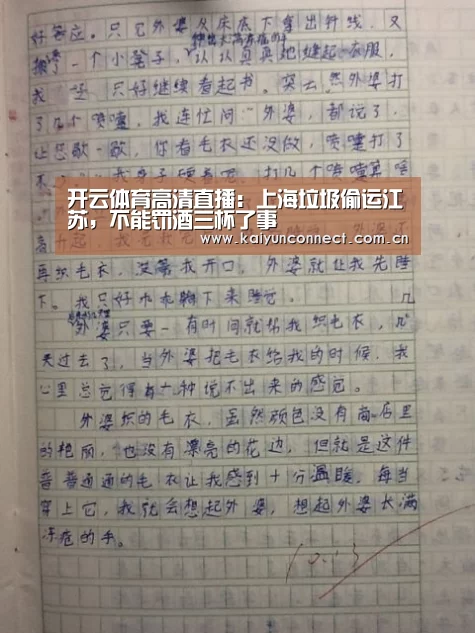 好答应。只见外婆从床底下拿出针线,又
搬了一个小凳子,认认真真地缝起衣服,
我 只好继续看起书。突然外婆打
了几个喷嚏,我连忙问“外婆,都说了,
让您歇一歇,你看毛衣还没做,喷嚏打了
打几个喷嚏算啥
开云体育高清直播:上海垃圾偷运江
苏,不能罚酒三杯了事
www.kaiyunconnect.com.cn
再织毛衣,没等我开口,外婆就让我先睡
下。我只好 下来睡觉。
外婆只要一有时间就帮我织毛衣,几
天过去了,当外婆把毛衣给我的时候,我
心里总觉得有一种说不出来的感觉。
外婆织的毛衣,虽然颜色没有商店里
的艳丽,也没有漂亮的花边,但就是这件
普普通通的毛衣让我感到十分温暖,每当
穿上它,我就会想起外婆,想起外婆长满
冻疮的手。
10.13